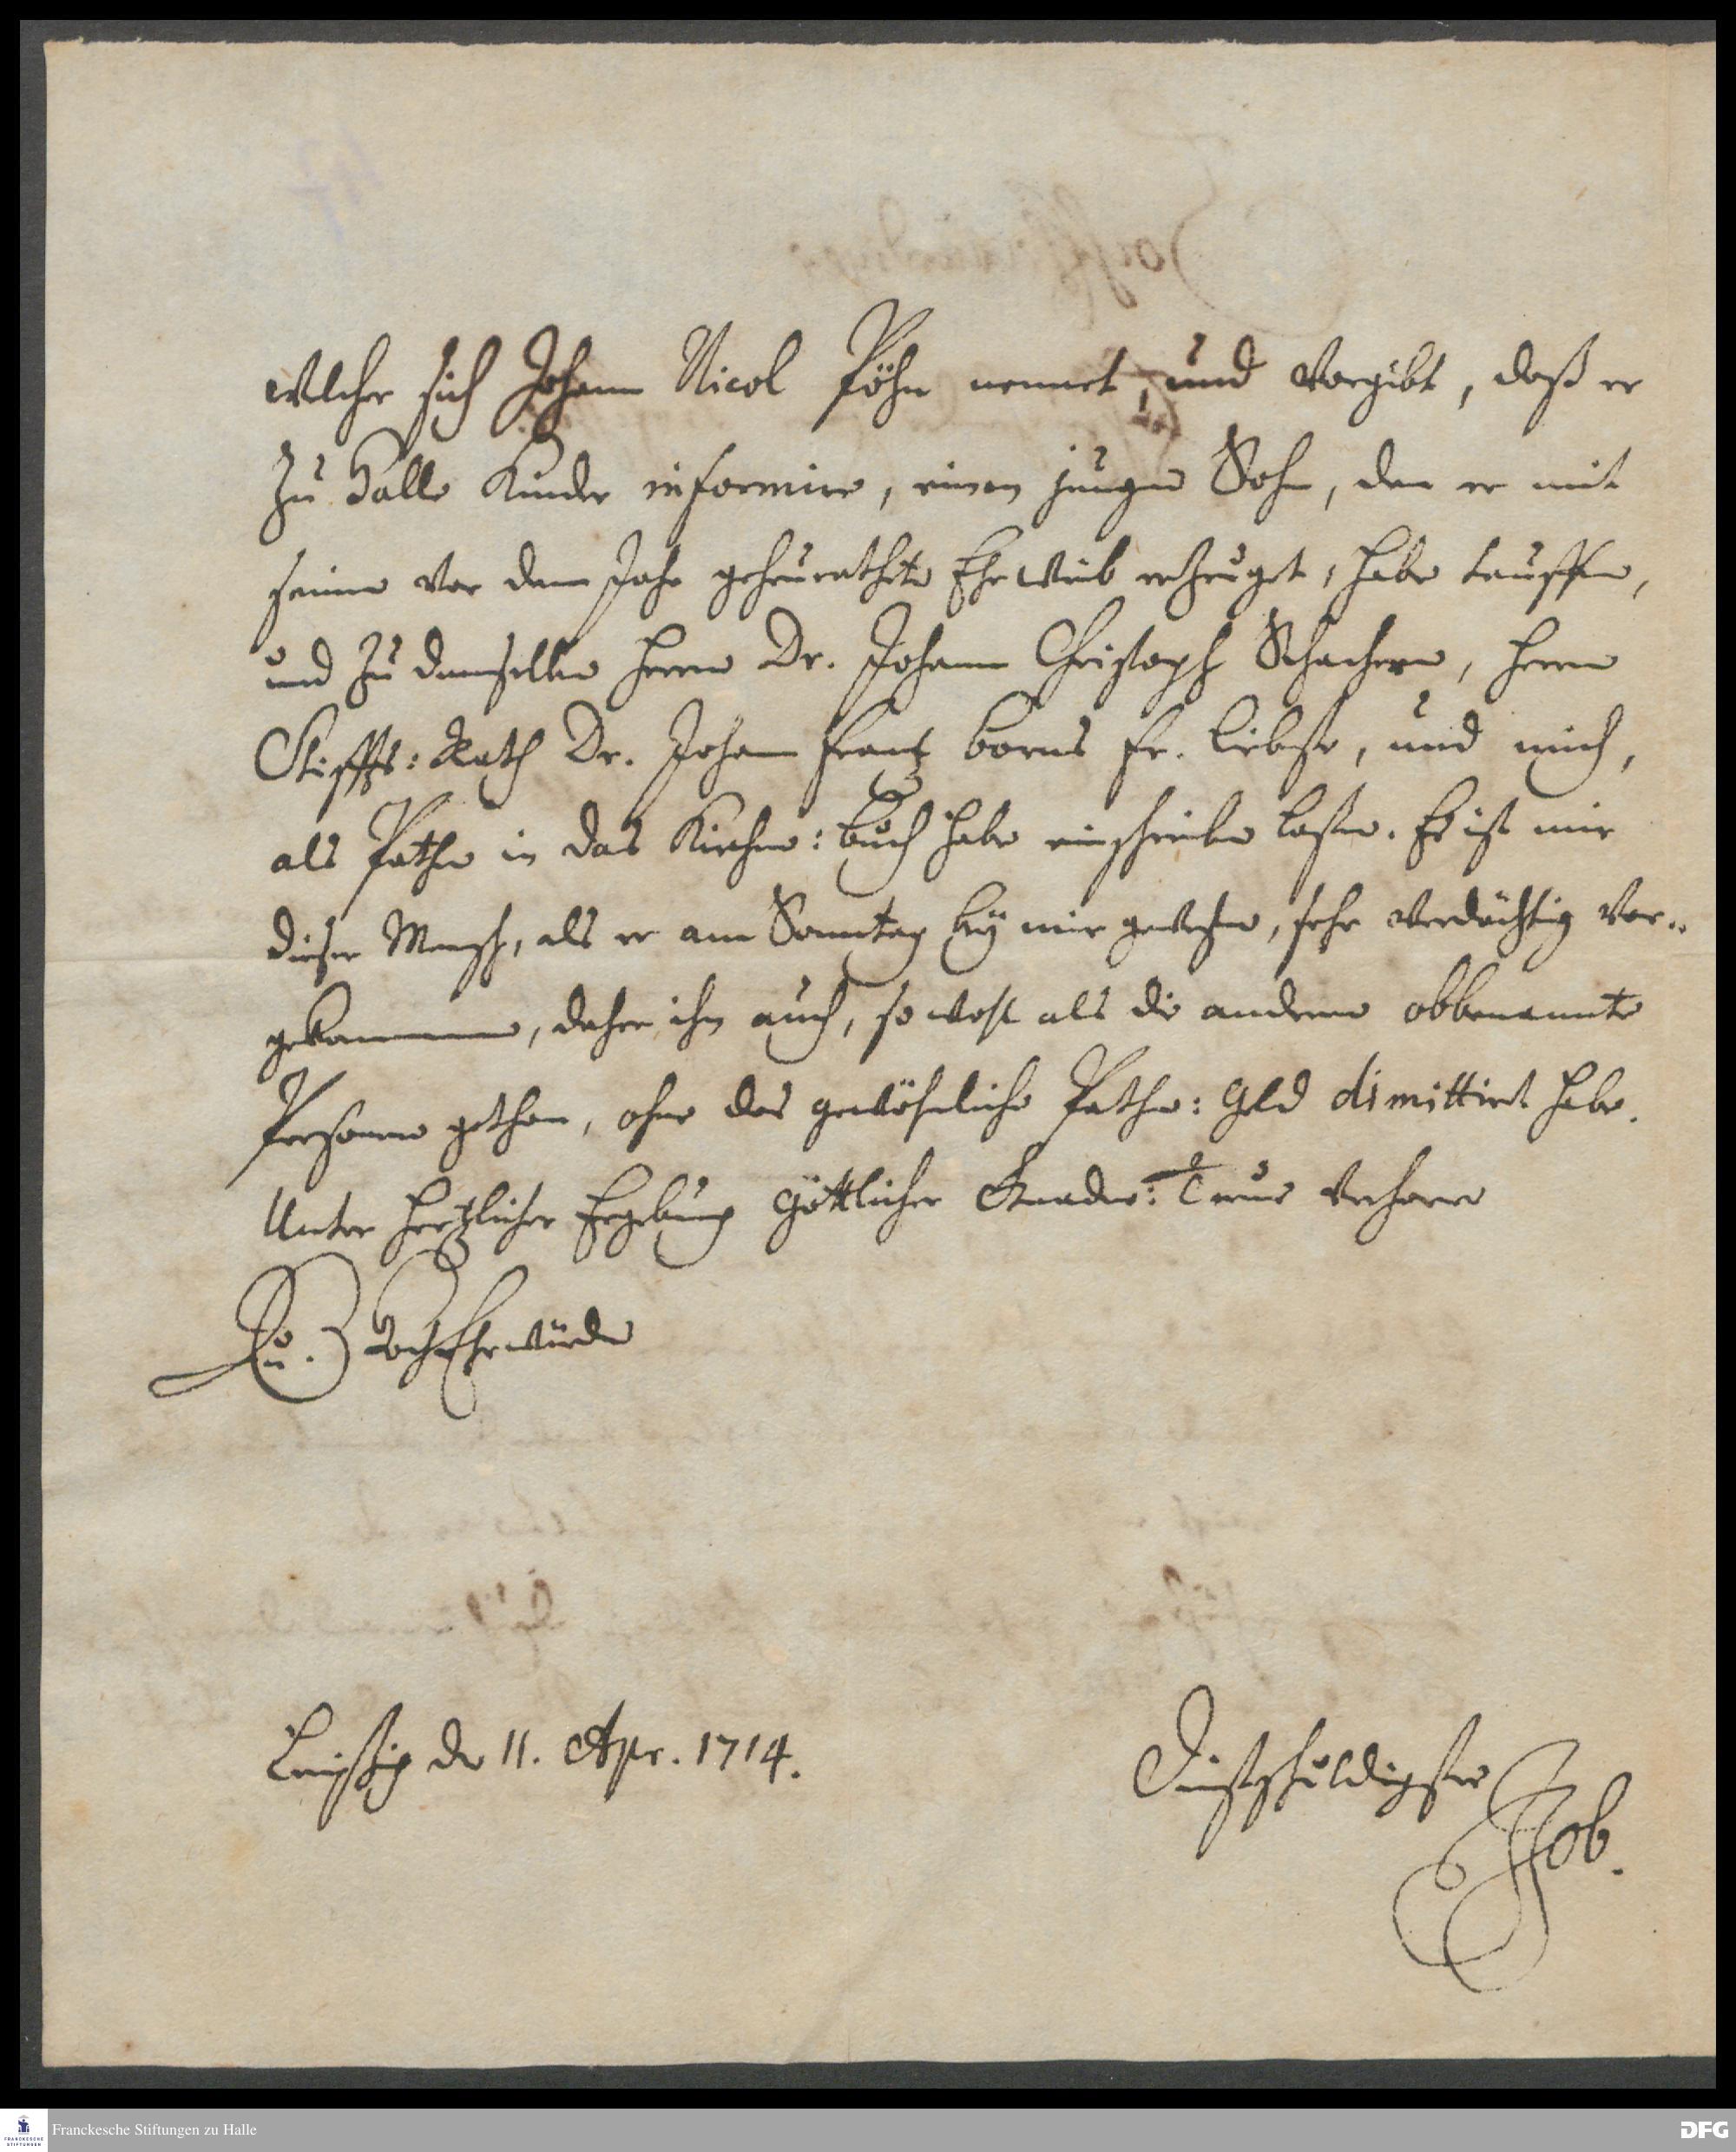 welcher sich Johann Nicol Pöhn nennet, und vorgibt, daß er
zu Halle Kinder informire, einen jungen Sohn, den er mit
seinem vor dem Jahr geheuratheten Eheweib erzeuget, habe tauffen,
und zu demselben Herrn Dr. Johann Christoph Schachern, Herrn
Stiffts: Rath Dr. Johann Frantz Borns Fr. Liebste, und mich,
als Pathen in das Kirchen: Buch habe einschreiben laßen. Es ist mir
dieser Mensch, als er am Sonntag bey mir gewesen, sehr verdächtig vor..
gekommen, daher ihn auch, so wohl als die anderen obbenannte
Personen gethan, ohne das gewöhnliche Pathen: Geld dimittiret habe.
Unter hertzlicher Ergebung Göttlicher Gnaden: Treue verharre
Eu. HochEhrwürden
Leipzig den 11. Apr. 1714.
Dienstschuldigster
Job.
Franckesche Stiftungen zu Halle
DFG